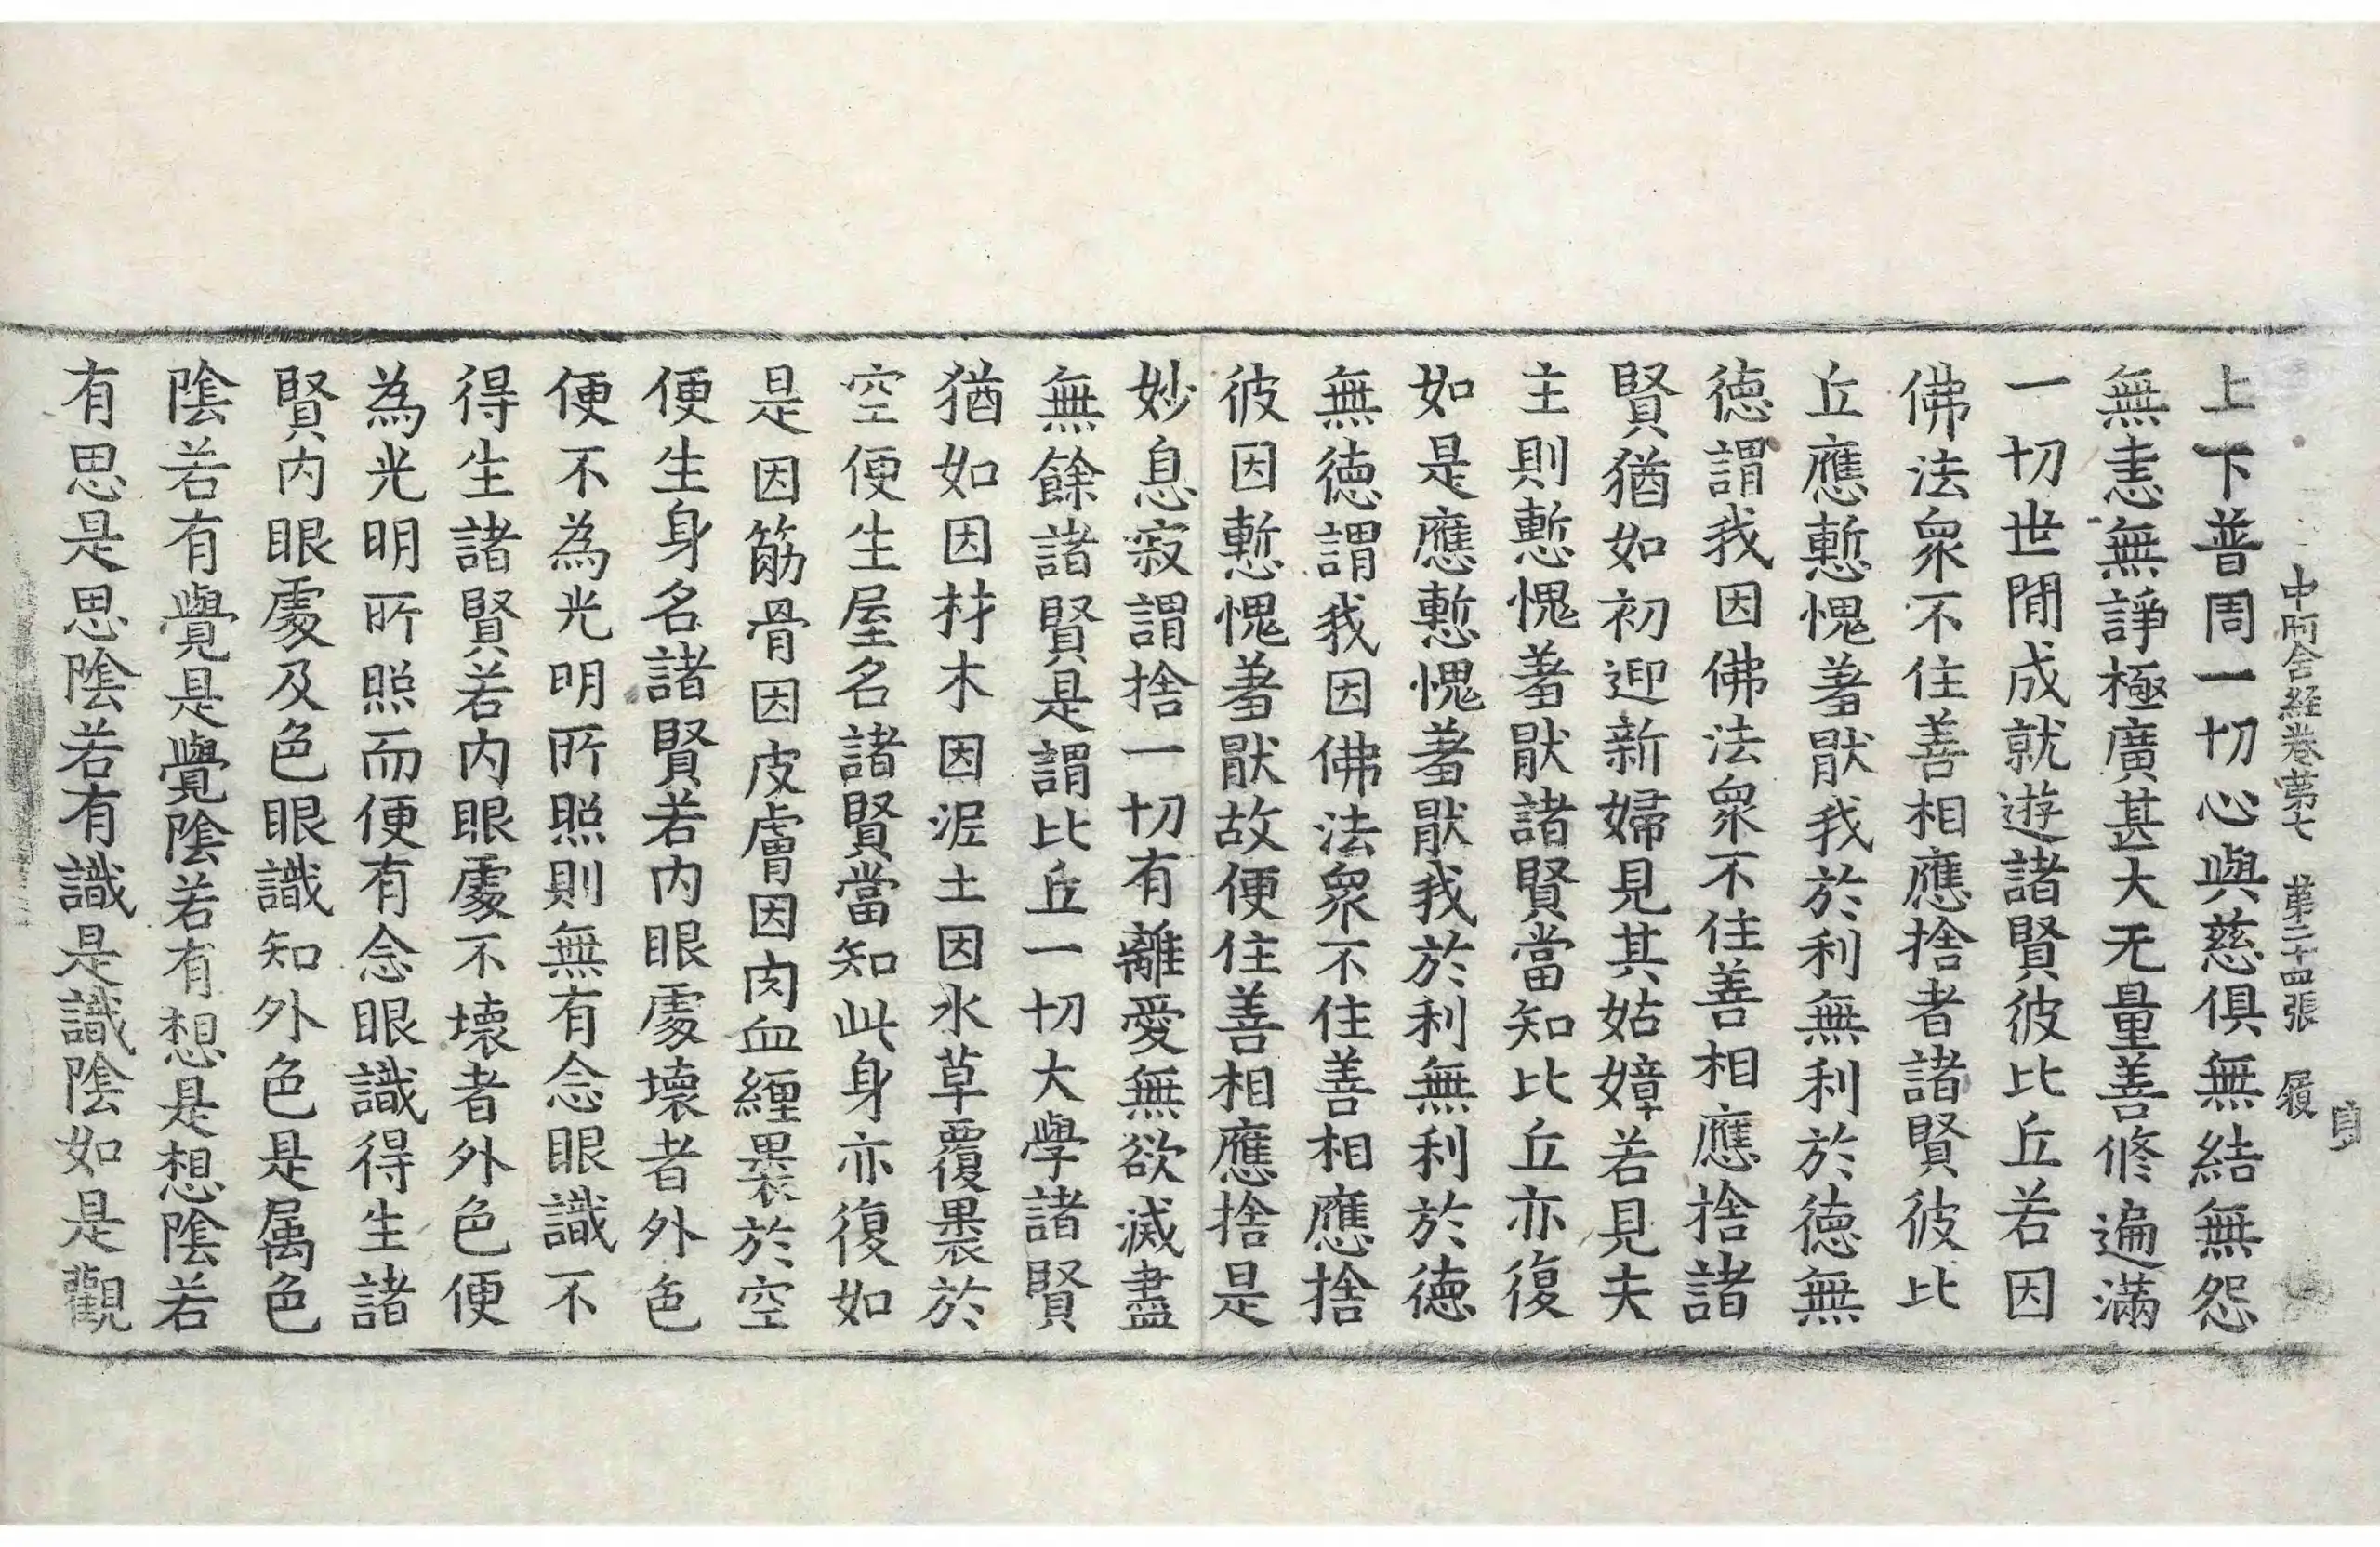 中阿含経卷第七　第二十四張　履
上下普周一切心與慈俱無結無怨
無恚無諍極廣甚大无量善修遍滿
一切世閒成就遊諸賢彼比丘若因
佛法衆不住善相應捨者諸賢彼比
丘應慙愧羞猒我於利無利於德無
德謂我因佛法衆不住善相應捨諸
賢猶如初迎新婦見其姑嫜若見夫
主則慙愧羞猒諸賢當知比丘亦復
如是應慙愧羞猒我於利無利於德
無德謂我因佛法衆不住善相應捨
彼因慙愧羞猒故便住善相應捨是
妙息寂謂捨一切有離愛無欲滅盡
無餘諸賢是謂比丘一切大學諸賢
猶如因材木因泥土因水草覆裹於
空便生屋名諸賢當知此身亦復如
是因筋骨因皮膚因肉血纏裹於空
便生身名諸賢若内眼處壞者外色
便不為光明所照則無有念眼識不
得生諸賢若内眼處不壞者外色便
為光明所照而便有念眼識得生諸
賢内眼處及色眼識知外色是属色
陰若有覺是覺陰若有想是想陰若
有思是思陰若有識是識陰如是觀